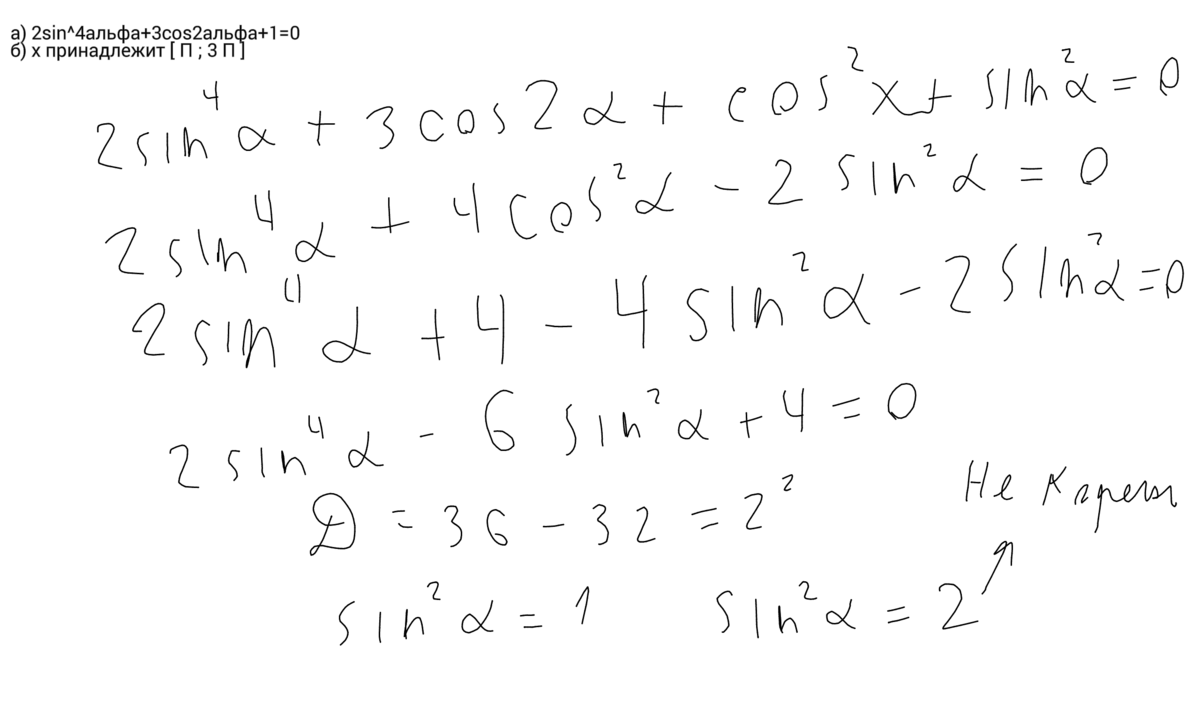 а) 2sin^4альфа+3cos2альфа+1=0
б) х принадлежит [ П ; 3 П ]
2sin⁴α + 3cos2α + cos²x + sin²α = 0
2sin⁴α + 4cos²α - 2sin²α = 0
2sin⁴α + 4 - 4sin²α - 2sin²α = 0
2sin⁴α - 6sin²α + 4 = 0
Не
D = 36 - 32 = 2²
sin²α = 1 sin²α = 2